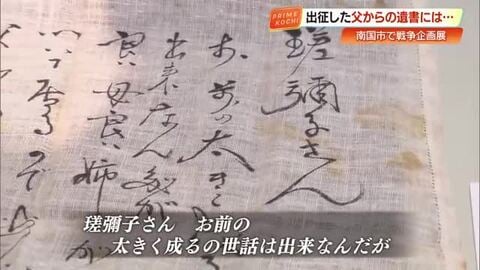 PRIME KOCHI
出征した父からの遺書には…
南国市で戦争企画展
瑳彌子さん
お前の太き
出来なんだが
良い母良い姉が
居るので
瑳彌子さん　お前の
太きく成るの世話は出来なんだが